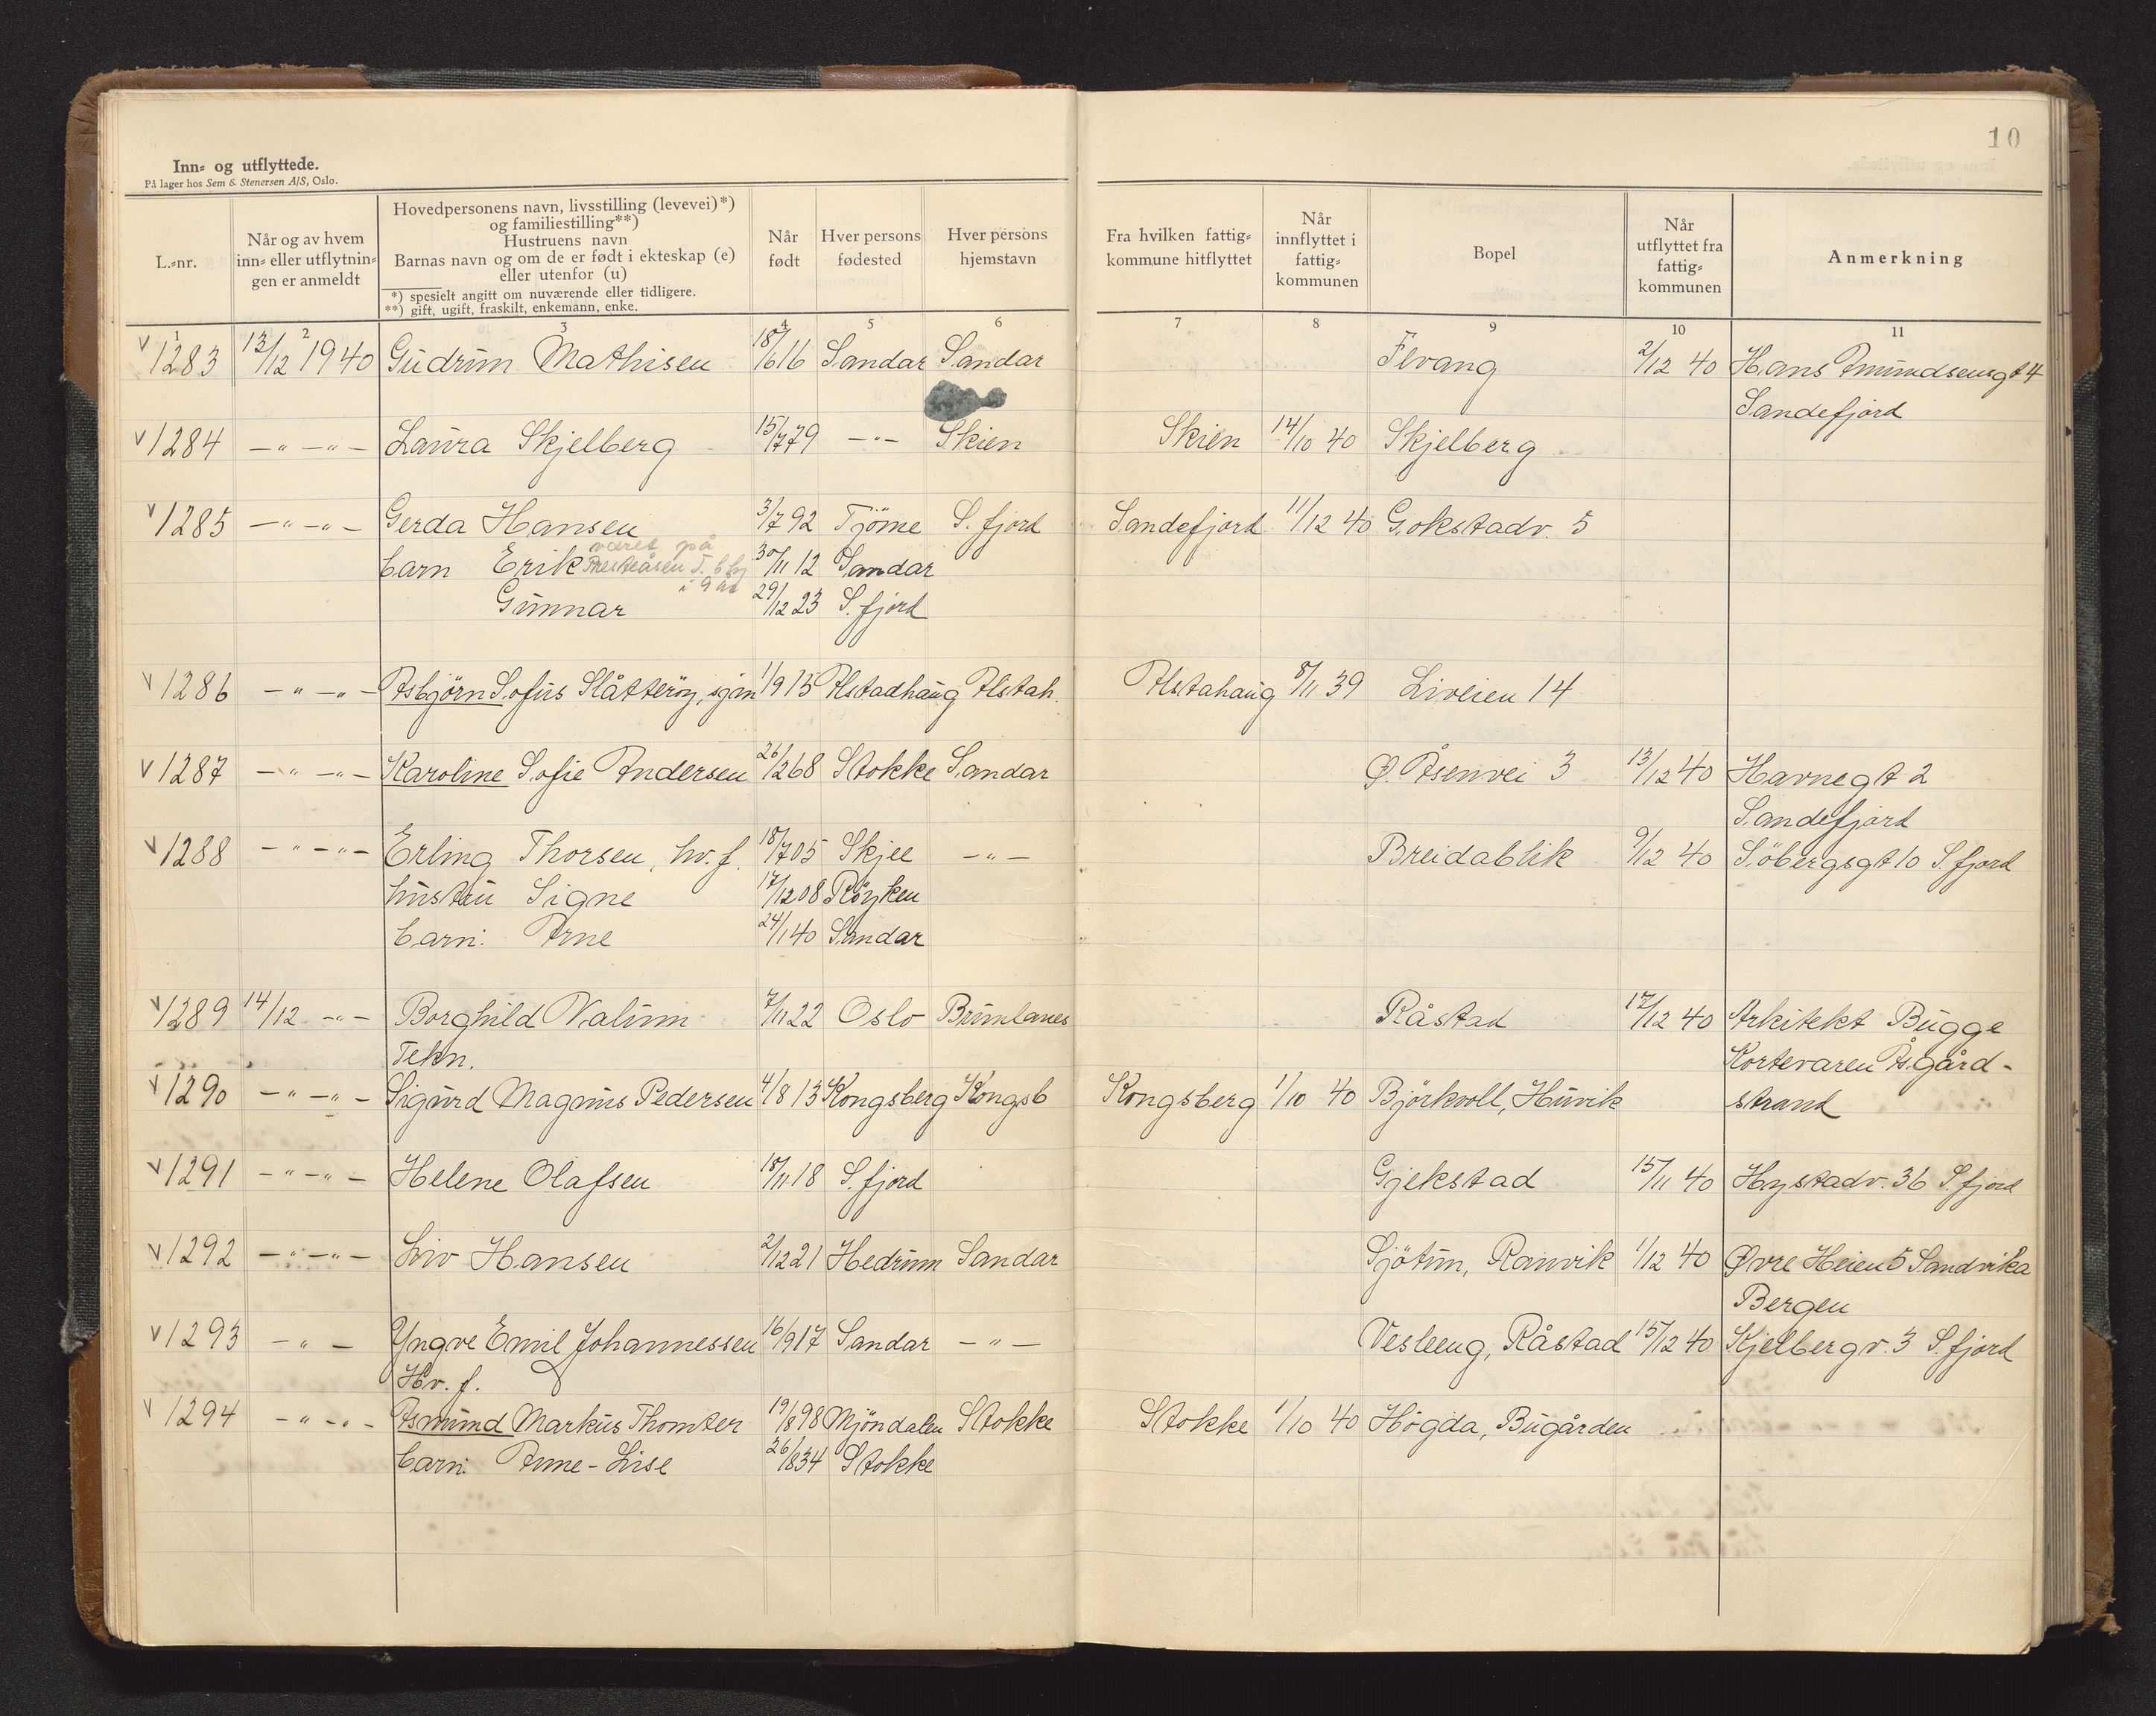 10
Inn= og utflyttede.
På lager hos Sem & Stenersen A/S, Oslo.
L.=nr.
Når og av hvem
inn= eller utflytnin=
gen er anmeldt
Hovedpersonens navn, livsstilling (levevei)*)
og familiestilling**)
Hustruens navn
Barnas navn og om de er født i ekteskap (e)
eller utenfor (u)
*) spesielt angitt om nuværende eller tidligere.
**) gift, ugift, fraskilt, enkemann, enke.
Når
født
Hver persons
fødested
Hver persons
hjemstavn
Fra hvilken fattig=
kommune hitflyttet
Når
innflyttet i
fattig=
kommunen
Bopel
Når
utflyttet fra
fattig=
kommunen
Anmerkning
1 2 3 4 5 6 7 8 9 10 11
v 1283 13/12 1940 Gudrun Mathisen 18/6 16 Sandar Sandar Elvang 2/12 40 Hans Amundsensgt 4
Sandefjord
v 1284 – " – " – Laura Skjelberg 15/7 79 – " – Skien Skien 14/10 40 Skjelberg
v 1285 – " – " – Gerda Hansen 3/7 92 Tjöme S. fjord Sandefjord 11/12 40 Gokstadv. 5
været på
barn Erik Presteåsen T. b by 30/11 12 Sandar
i 9 år
Gunnar 29/12 23 S. fjord
v 1286 – " – " – Asbjörn Sofus Slåtteröy, sjøm 1/9 15 Alstadhaug Alstah. Alstahaug 8/11 39 Liveien 14
v 1287 – " – " – Karoline Sofie Andersen 26/2 68 Stokke Sandar Ø. Åsenvei 3 13/12 40 Havnegt 2
Sandefjord
v 1288 – " – " – Erling Thorsen, hv. f. 18/7 05 Skjee – " – Breidablik 9/12 40 Söbergsgt 10 S. fjord
hustru Signe 17/12 08 Röyken
barn: Arne 24/1 40 Sandar
v 1289 14/12 – " – Borghild Valum 7/11 22 Oslo Brunlanes Råstad 17/12 40 Arkitekt Bugge
Tekn. Kortevaren Åsgård-
v 1290 – " – " – Sigurd Magnus Pedersen 4/8 13 Kongsberg Kongsb Kongsberg 1/10 40 Björkvoll, Huvik strand
v 1291 – " – " – Helene Olafsen 18/11 18 S. fjord Gjekstad 15/11 40 Hystadv. 36 S. fjord
v 1292 – " – " – Liv Hansen 2/12 21 Hedrum Sandar Sjötun, Ranvik 1/12 40 Øvre Heien 5 Sandvika
Bergen
v 1293 – " – Yngve Emil Johannessen 16/9 17 Sandar – " – Vesleeng, Råstad 15/12 40 Kjelbergv. 3 S. fjord
Hv. f.
v 1294 – " – " – Asmund Markus Thomter 19/8 98 Mjöndalen Stokke Stokke 1/10 40 Högda, Bugården
barn: Anne-Lise 26/8 34 Stokke